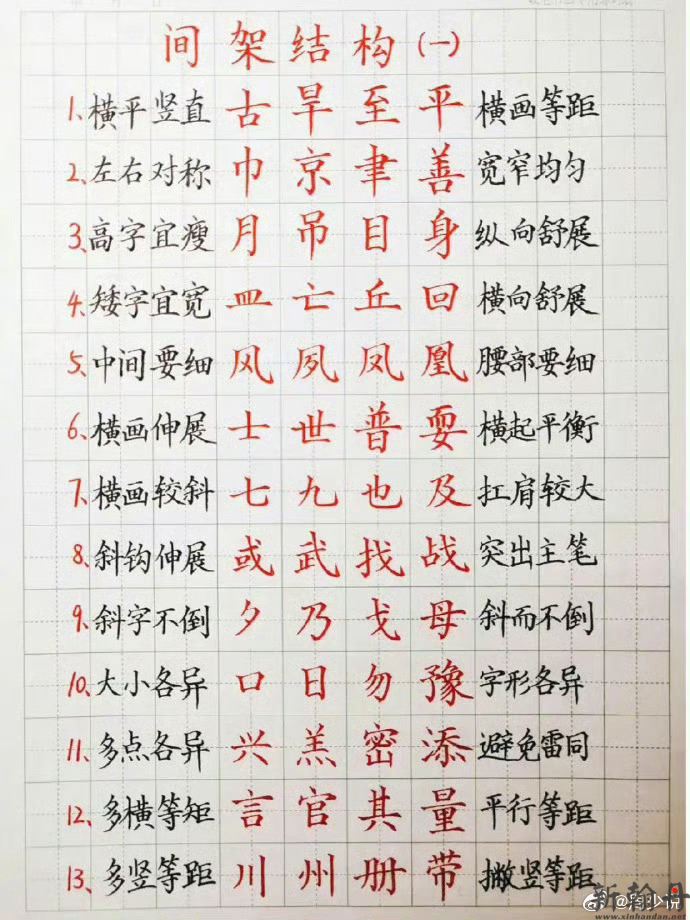 间架结构(一)
1、横平竖直 古 旱 至 平 横画等距
2、左右对称 巾 京 聿 善 宽窄均匀
3、高字宜瘦 月 吊 目 身 纵向舒展
4、矮字宜宽 皿 亡 丘 回 横向舒展
5、中间要细 风 夙 凤 凰 腰部要细
6、横画伸展 士 世 普 耍 横起平衡
7、横画较斜 七 九 也 及 扛肩较大
8、斜钩伸展 或 武 找 战 突出主笔
9、斜字不倒 夕 乃 戈 母 斜而不倒
10、大小各异 口 日 勿 豫 字形各异
11、多点各异 兴 羔 密 添 避免雷同
12、多横等矩 言 官 其 量 平行等距
13、多竖等距 川 州 册 带 撇竖等距
新翰丹
www.xinhandan.net